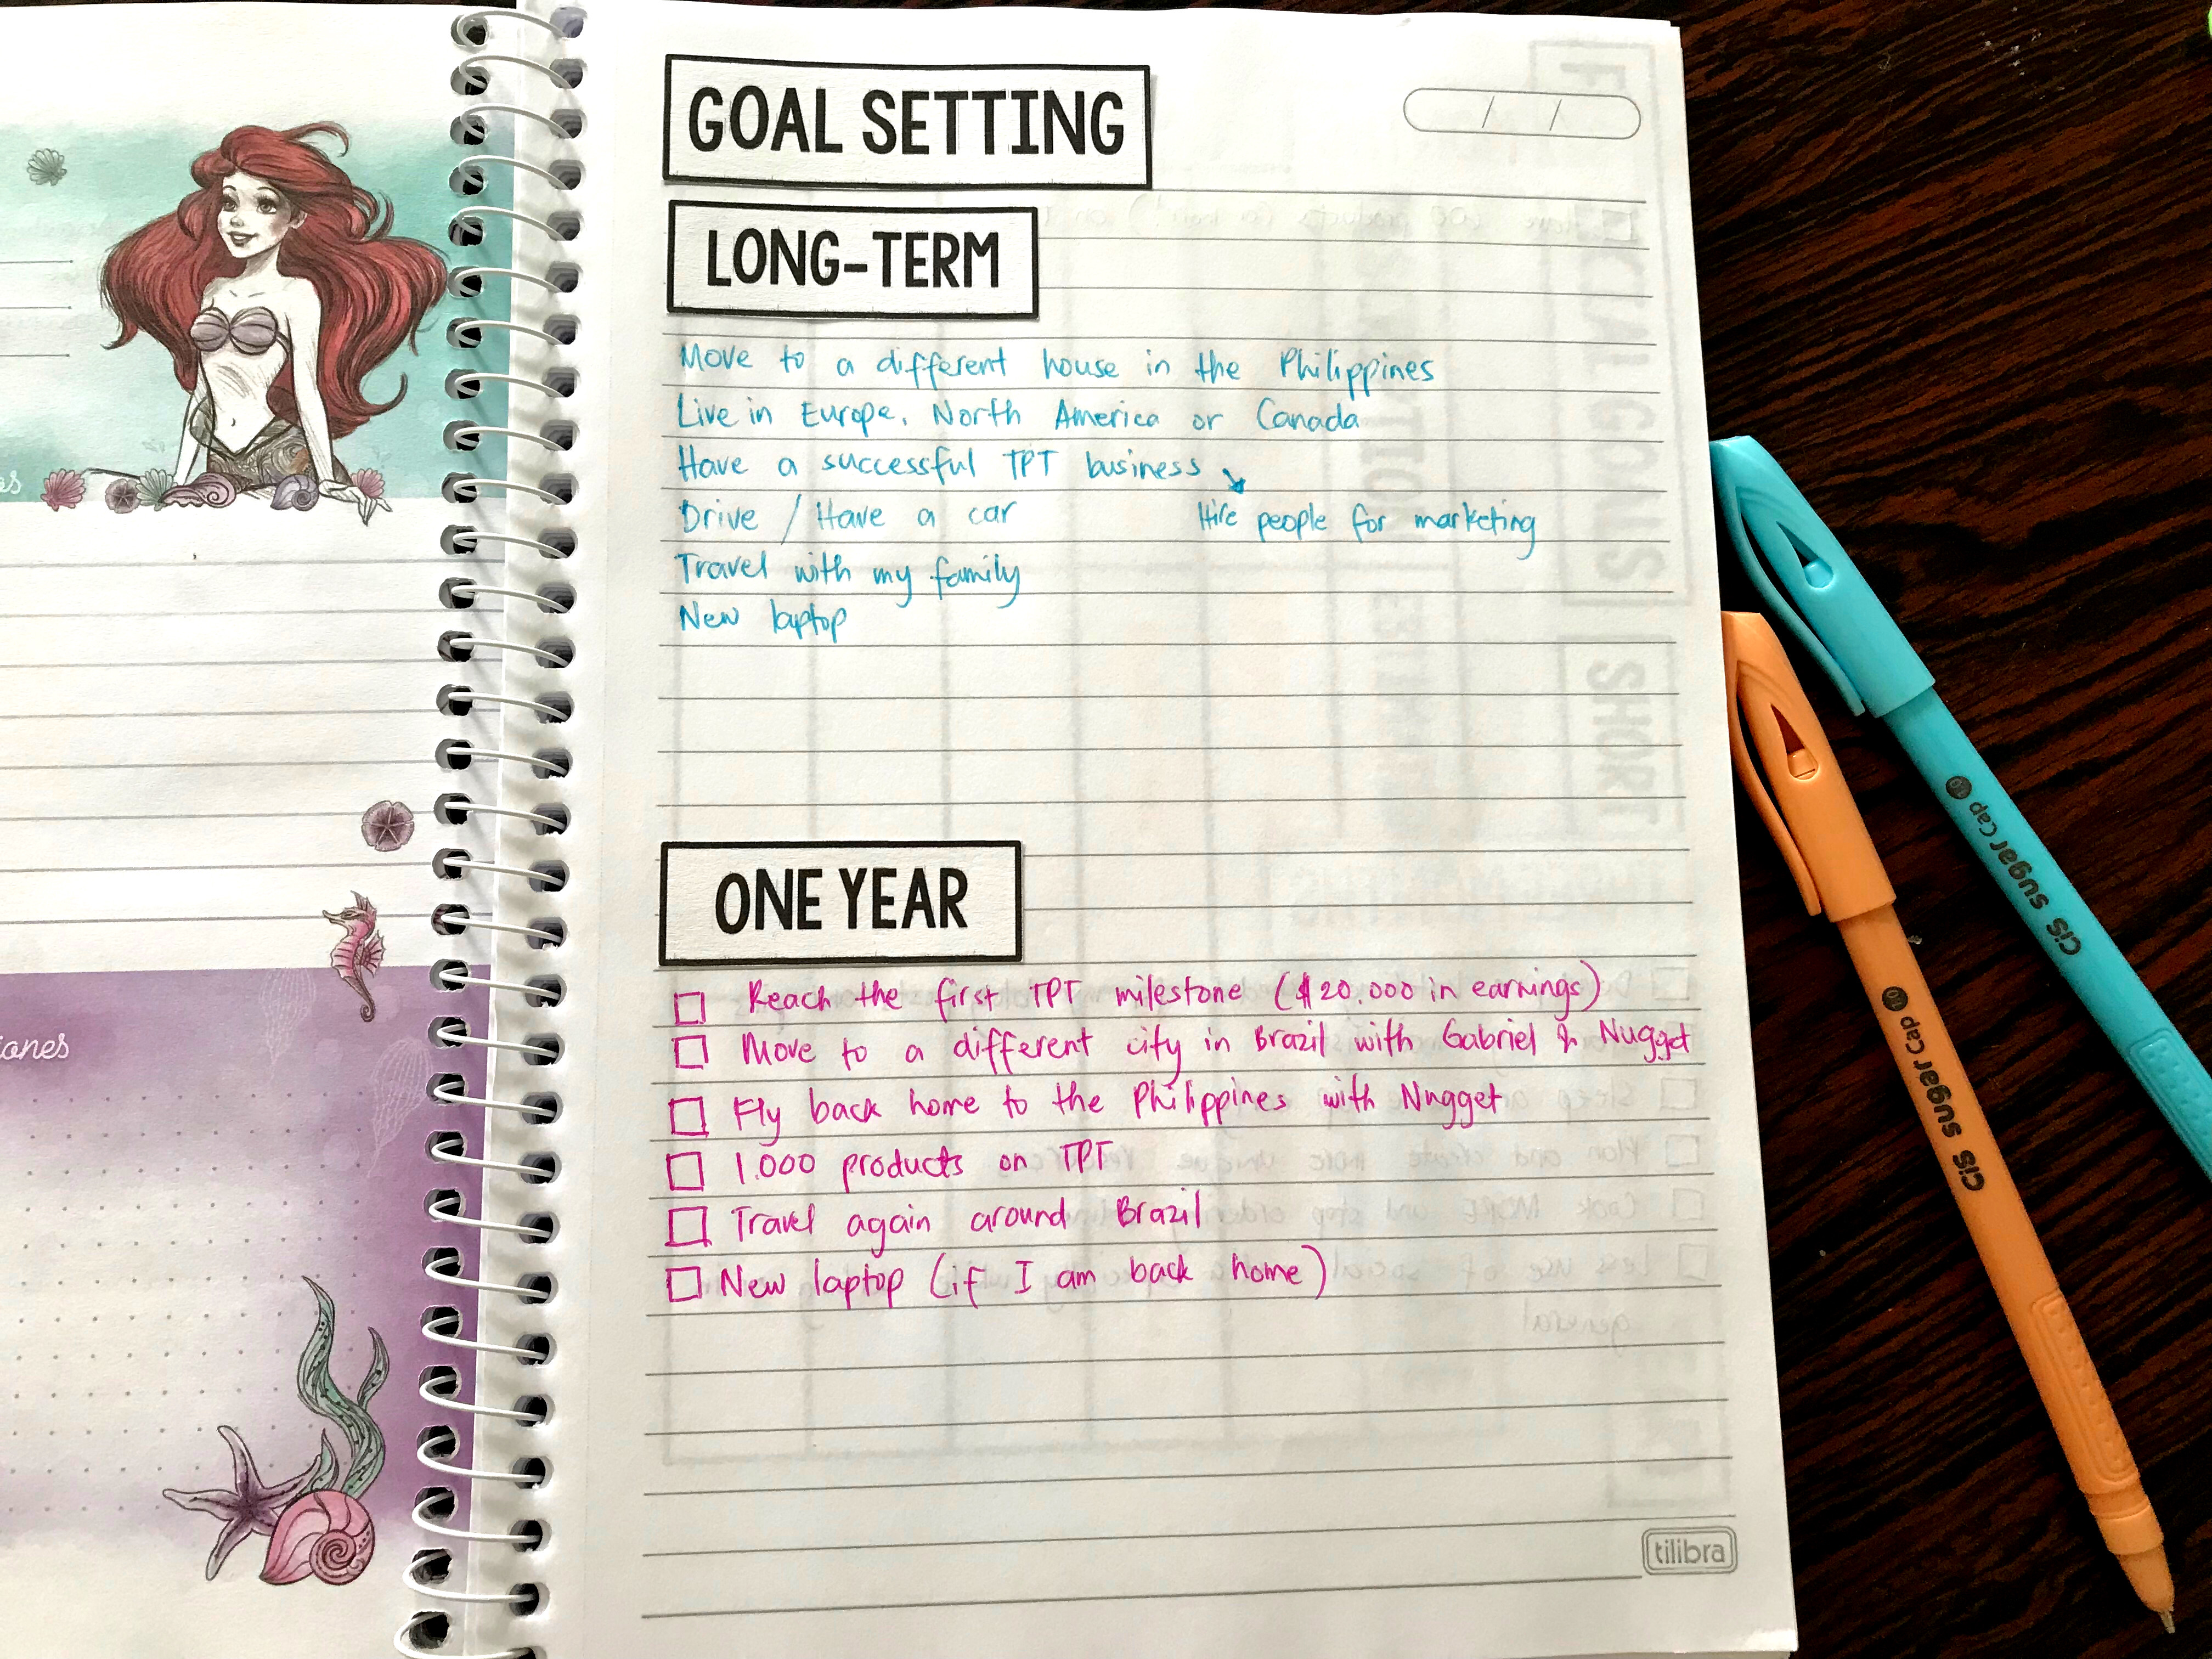 GOAL SETTING
/ /
LONG-TERM
Move to a different house in the Philippines
Live in Europe, North America or Canada
Have a successful TPT business
Drive / Have a car
Hire people for marketing
Travel with my family
New laptop
ONE YEAR
Reach the first TPT milestone ($20.000 in earnings)
Move to a different city in Brazil with Gabriel & Nugget
Fly back home to the Philippines with Nugget
1.000 products on TPT
Travel again around Brazil
New laptop (if I am back home)
tilibra
cis sugar cap
cis sugar cap